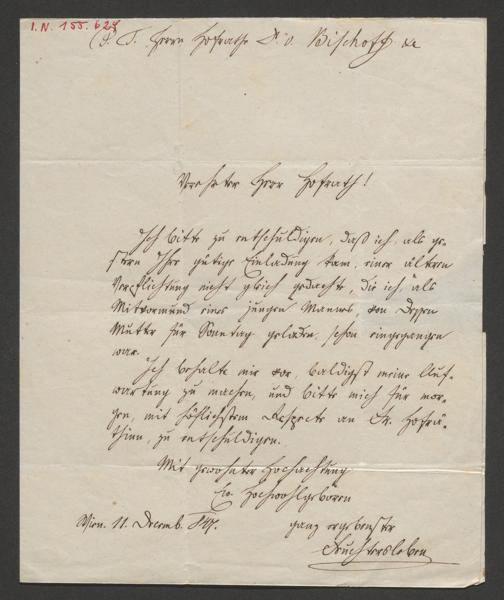 I.N. 155.628
P. T. Herrn Hofrathe Dr. v. Bischoff &c
Verehrter Herr Hofrath!
Ich bitte zu entschuldigen, daß ich, als ge-
stern Ihre gütige Einladung kam, einer älteren
Verpflichtung nicht gleich gedachte, die ich als
Mitvormund eines jungen Mannes, von dessen
Mutter für Sonntag geladen, schon eingegangen
war.
Ich behalte mir vor, baldigst meine Auf-
wartung zu machen, und bitte mich für mor-
gen, mit höflichstem Respecte an Fr. Hofrä-
thinn, zu entschuldigen.
Mit gewohnter Hochachtung
Eu. Hochwohlgeboren
Wien. 11. Decemb. 847.
ganz ergebenster
Feuchtersleben